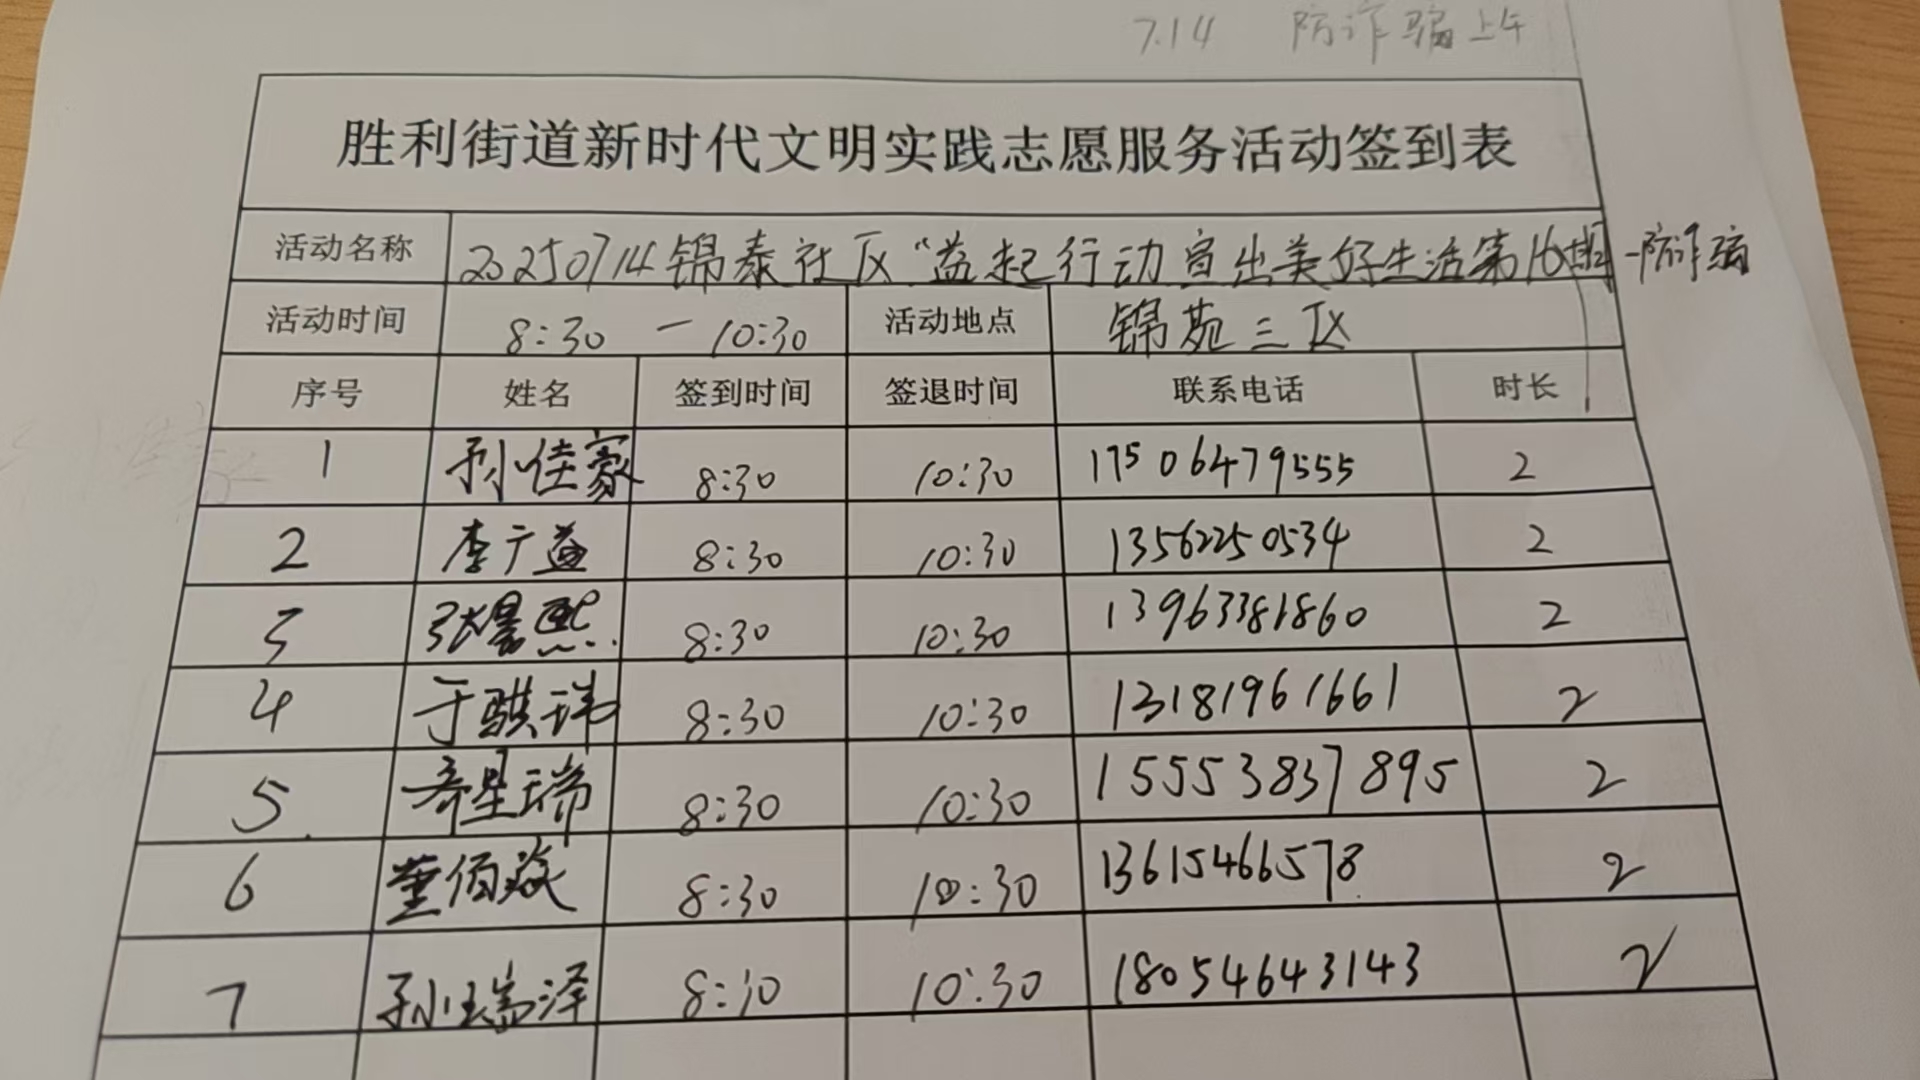 7.14 防诈骗上午
胜利街道新时代文明实践志愿服务活动签到表
活动名称 20250714锦泰社区“益起行动宣出美好生活第16期-防诈骗
活动时间 8:30 — 10:30 活动地点 锦苑三区
序号 姓名 签到时间 签退时间 联系电话 时长
1 孙佳豪 8:30 10:30 17506479555 2
2 李广益 8:30 10:30 13562250534 2
3 张熙 8:30 10:30 13963381860 2
4 于骐玮 8:30 10:30 13181961661 2
5. 星瑞 8:30 10:30 15553837895 2
6 董佰焱 8:30 10:30 13615466578 2
7 孙瑞泽 8:30 10:30 18054643143 2